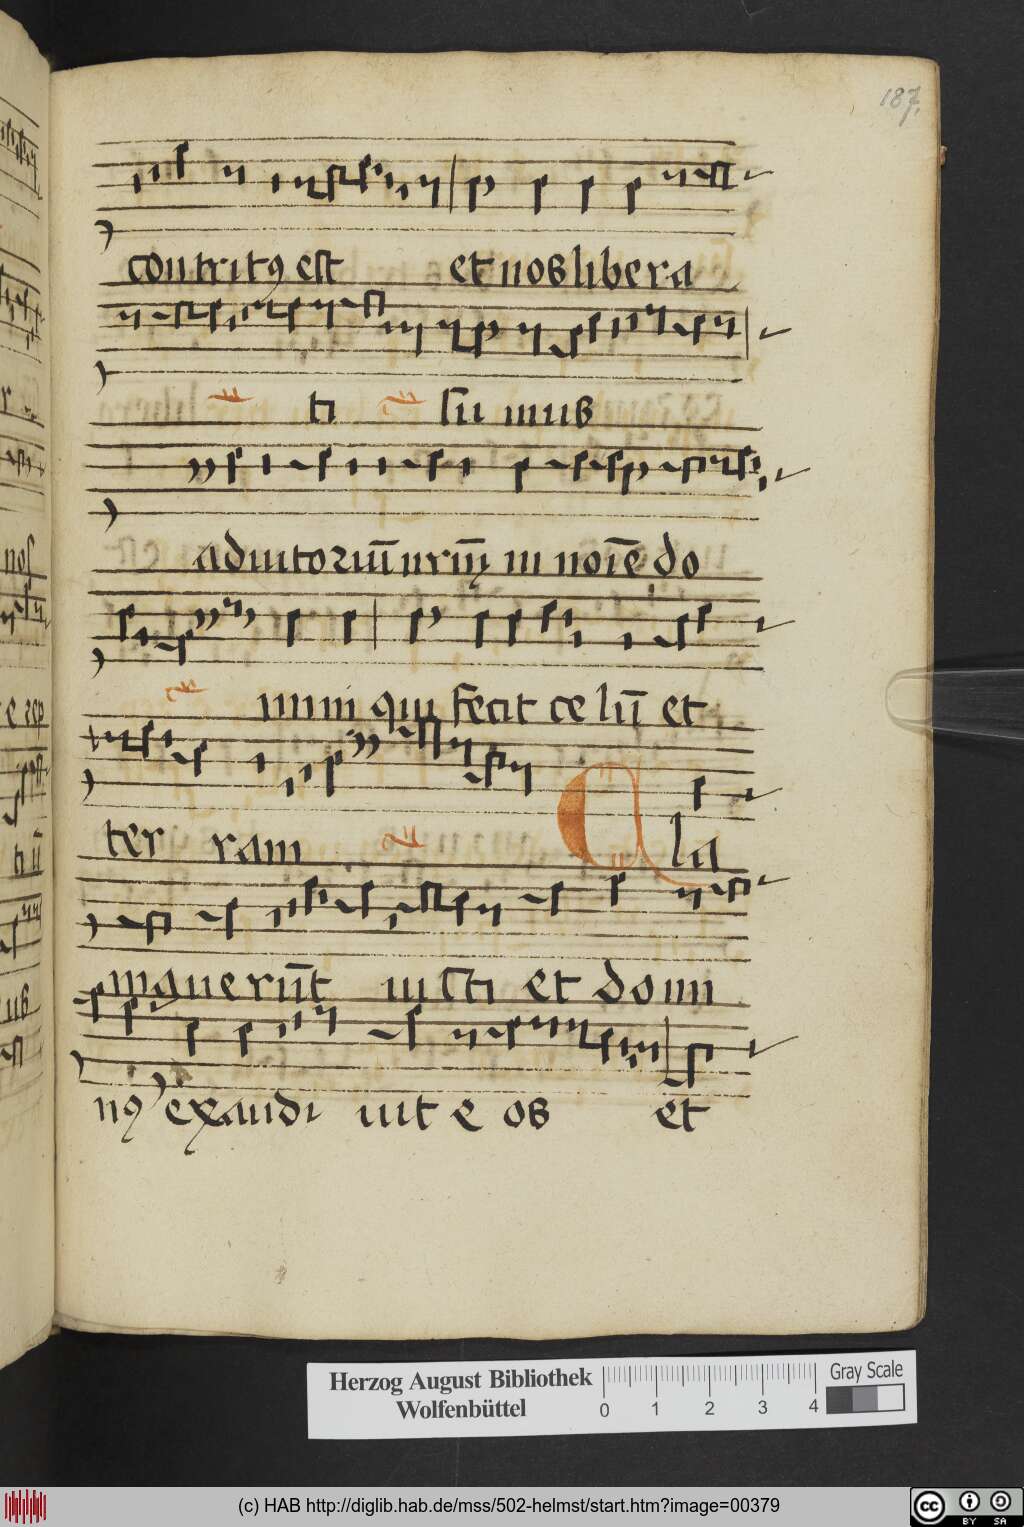 187,
contritꝯ est et nos libera
ti sumus
adiutoriū nrm̄ in noīe do
mini qui fecit celū et
ter ram Cla
mauerūt iusti et domi
nꝯ exaudi uit e os et
Herzog August Bibliothek
Wolfenbüttel
0 1 2 3 4
Gray Scale
(c) HAB http://diglib.hab.de/mss/502-helmst/start.htm?image=00379
cc BY SA